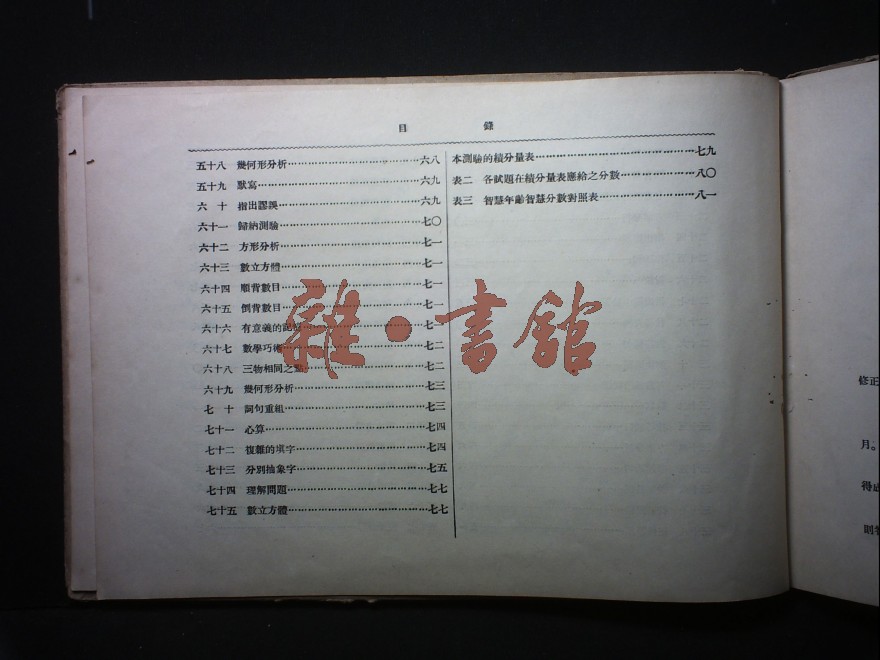 目 錄
五十八 幾何形分析…六八
五十九 默寫…六九
六 十 指出謬誤…六九
六十一 歸納測驗…七〇
六十二 方形分析…七一
六十三 數立方體…七一
六十四 順背數目…七一
六十五 倒背數目…七一
六十六 有意義的記憶…七一
六十七 數學巧術…七二
六十八 三物相同之點…七二
六十九 幾何形分析…七三
七 十 詞句重組…七三
七十一 心算…七四
七十二 複雜的填字…七四
七十三 分別抽象字…七五
七十四 理解問題…七七
七十五 數立方體…七七
本測驗的績分量表…七九
表二 各試題在績分量表應給之分數…八〇
表三 智慧年齡智慧分數對照表…八一
雜·書館
修正
月。
得
則